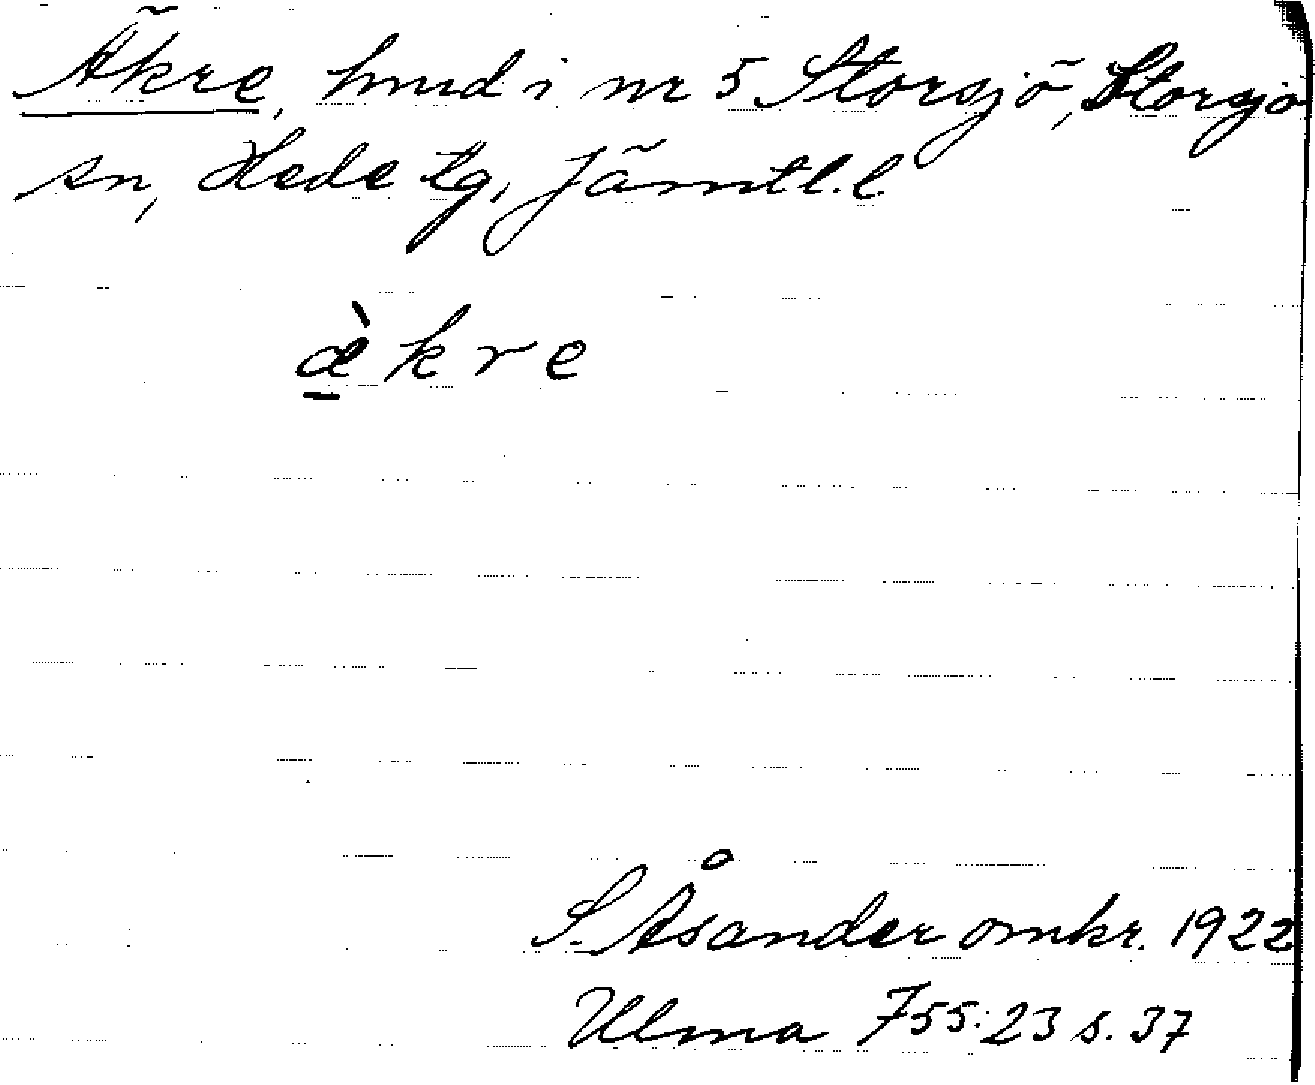 Äkre, hmd i nr 5 Storsjö, Storsjö
sn, Hede tg, Jämtl. l.
æ̱̀kre
S. Åsander omkr. 1922
Ulma 755:23 s. 37